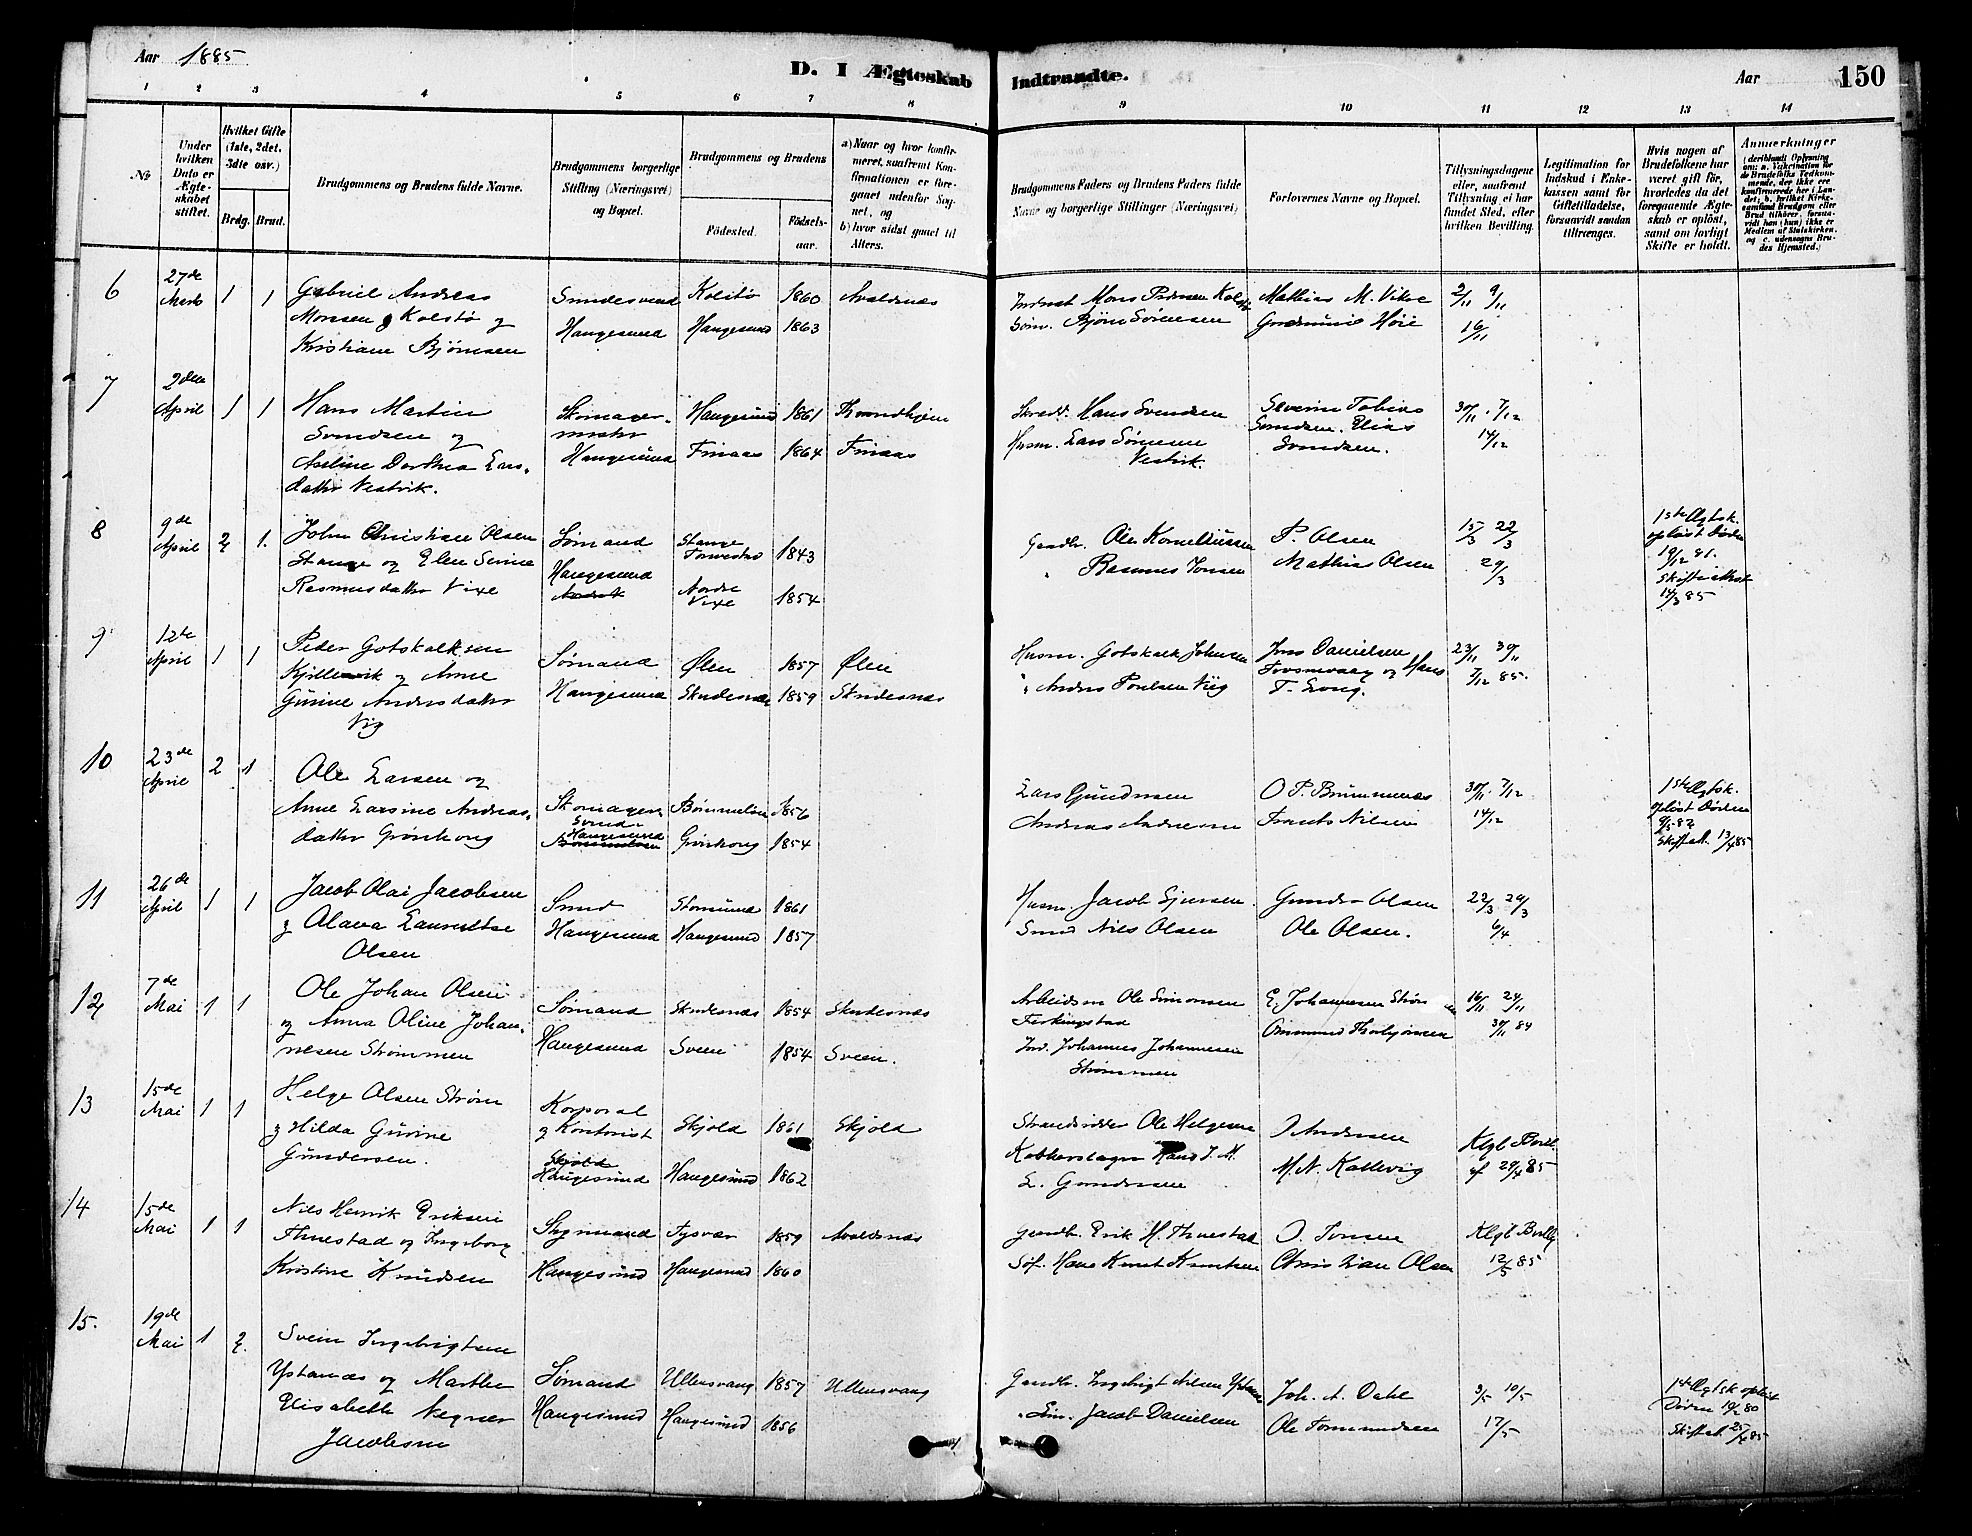 Aar 1885
D. I Ægteskab Indtraadte.
Aar 150
1 2 3 4 5 6 7 8 9 10 11 12 13 14
No
Under hvilken Dato er Ægteskabet stiftet.
Hvilket Gifte (1ste, 2det, 3die osv.)
Brdg. Brud.
Brudgommens og Brudens fulde Navne.
Brudgommens borgerlige Stilling (Næringsvei) og Bopæl.
Brudgommens og Brudens
Fødested. Fødselsaar.
a) Naar og hvor konfirmeret, saafremt Konfirmationen er foregaaet udenfor Sognet, og
b) hvor sidst gaaet til Alters.
Brudgommens Faders og Brudens Faders fulde Navne og borgerlige Stillinger (Næringsvei)
Forlovernes Navne og Bopæl.
Tillysningsdagene eller, saafremt Tillysning ei har fundet Sted, efter hvilken Bevilling.
Legitimation for Indskud i Enkekassen samt for Giftetilladelse, forsaavidt saadan tiltrænges.
Hvis nogen af Brudefolkene har været gift før, hvorledes da det foregaaende Ægteskab er opløst, samt om lovligt Skifte er holdt.
Anmærkninger
6 27de Marts 1 1
Gabriel Andreas
Monsen Kolstø og
Kristiane Bjørnsen
Smedesvend
Haugesund
Kolstø 1860 Avaldsnæs
Haugesund 1863
Mons Pedersen Kolstø
Bjørn Sørensen
Mathias M. Vikse
Gudmund Høie
2/11 9/11
16/11
7 2den April 1 1
Hans Martin
Svendsen og
Aseline Dorthea Lars-
datter Vestvik.
Skomager-
mester
Haugesund
Haugesund 1861 Throndhjem
Finaas 1864 Finaas
Skredd. Hans Svendsen
Husm. Lars Sørensen
Vestvik.
Severin Tobias
Svendsen. Elias
Svendsen.
30/11. 7/12
14/12
8 9de April 2 1.
John Christian Olsen
Stange og Elen Serine
Rasmusdatter Vixe
Sømand
Haugesund
Stange
1843
Nordre
Vixe 1854
Gaardb. Ole Korneliussen
" Rasmus Jonsen
P. Olsen
Mathias Olsen
15/3 22/3
29/3
1ste Ægtsk.
opløst Døden
19/12 81.
Skifteattest
14/3 85
9 12te April 1 1
Peder Gotskalksen
Kjillesvik og Anne
Gurine Andersdatter
Vig
Sømand
Haugesund
Ølen 1857 Ølen
Skudesnæs 1859 Skudesnæs
Husm. Gotskalk Johnsen
" Anders Poulsen Viig
Jens Danielsen
og Hans
T. Long.
23/11 30/11
7/12 85.
10 23de April 2 1
Ole Larsen og
Anne Larsine Andreas-
datter Grønhoug
Skomager
Svend
Haugesund
Bømmeløen 1856
Grønhoug 1854
Lars Gundersen
Andreas Andersen
O P. Brummenæs
Frants Nilsen
30/11. 7/12
14/12
1ste Ægtsk.
opløst Døden
9/5 82
Skifteatt. 13/4 85
11 26de April 1 1
Jacob Olai Jacobsen
og Olava Lauretse
Olsen
Smed
Haugesund
Stonsund 1861
Haugesund 1857
Husm. Jacob Ejersen
Smed Nils Olsen
Gunder Olsen
Ole Olsen.
22/3 29/3
6/4
12 7de Mai 1 1
Ole Johan Olsen
og Anna Oline Johan-
nesen Strømmen
Sømand
Haugesund
Skudesnæs 1854 Skudesnæs
Sveen 1854 Sveen.
Arbeidsm Ole Simonsen
Ferkingstad
Ind. Johannes Johannesen
Strømmen
E. Johannesen Strømmen
Ommund Thorbjørnsen
16/11 24/11
30/11 84
13 15de Mai 1 1
Helge Olsen Strøm
og Hilda Gurine
Gundersen.
Korporal
og Kontorist
Skjold
Haugesund
Skjold 1861 Skjold
Haugesund 1862
Strandsidder Ole Helgesen
Kobberslager Hans J. M.
L. Gundersen
O Andersen
M. N. Kallevig
Klgl Bevll.
af 29/4 85
14 15de Mai 1 1
Nils Henrik Eriksen
Thuestad og Ingeborg
Kristine Knudsen
Styrmand
Haugesund
Tysvær 1859 Avaldsnæs
Haugesund 1860
Gaardb. Erik H. Thuestad
Hans Knut Knutsen
O. Tonsen
Christian Olsen
Klgl Bevllg
12/5 85
15. 19de Mai 1 2.
Svein Ingebrigtsen
Ystanæs og Marthe
Elisabeth Negner
Jacobsen
Sømand
Haugesund
Ullensvang 1857 Ullensvang
Haugesund 1856
Gaardb. Ingebrigt Nilsen Ystanæs
Jacob Danielsen
Joh. A. Dahl
Ole Tommundsen
3/5 10/5
17/5
1ste Ægtsk opløst
Døden 19/2 80
Skifteat. 25/4 85